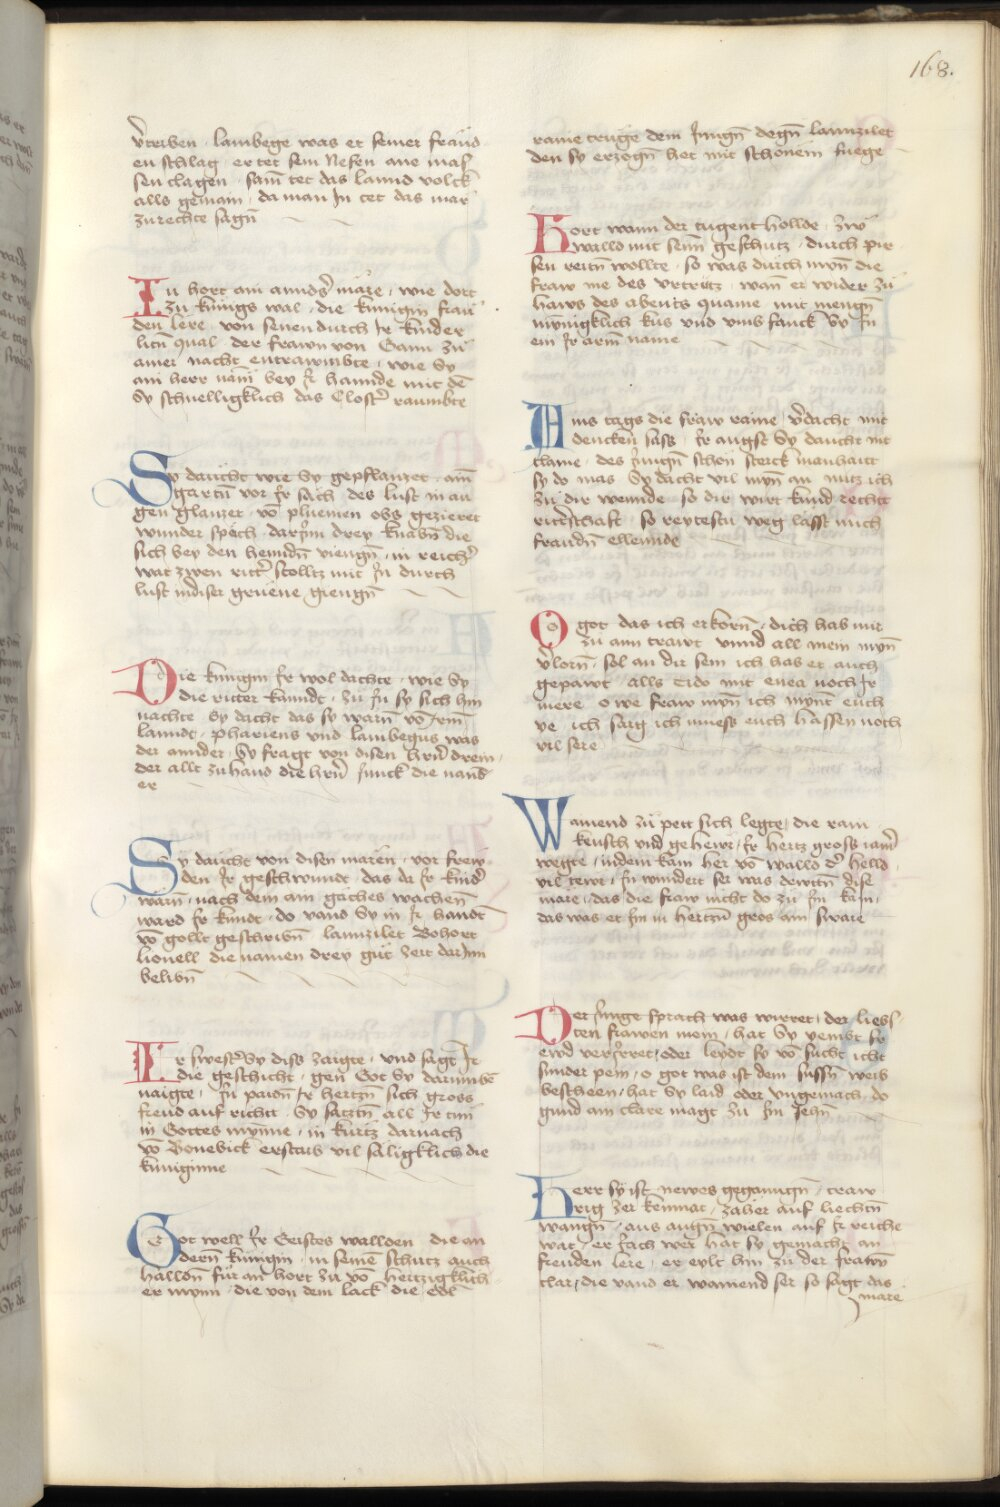 168.
v̄triben · lambege was er seiner fraüd
en schlag · er tet sein Nefen ane mas
sen clagen · sam tet das lannd volck
alls gemain · da man In tet das mar
zurechte sagn̄
In hort ain annds̄ märe · wie dort
zu künigs wal · die künigin fraü
den lere · von senen durch Ir kinder
lein qual · der frawn von Gann zü
ainer nacht entrawmbte · wie Sy
ain herr nam bey Ir hannde mit dē
Sy schnelligklich das Closter̄ raumbte
Sy daücht wie Sy gepflanzet · ain̄
gartn̄ vor Ir sach · des lust man
gen glanzet · vō pluemen obs gezieret
wunder spech · darJnn drey knabn̄ die
sich bey den henndn̄ viengn̄ · in reicher̄
wat zwen ritter̄ stolltz mit In durch
lust in diser gruene giengn̄
Die künigin Ir wol dachte · wie Sy
die ritter kanndt · zü In sy sich hin
nachte Sy dacht das sy warn̄ vō Irm̄
lanndt · phariens vnd lambegus was
der annder · Sy fragt von disen hrn̄ drein ·
der allt zuhand die hrn̄ Junck die nand
er
Sy daucht von disen maren · vor frew
den Ir geschwundt das da Ir kinder̄
warn · nach dem ain gaches wachen
ward Ir kundt · do vand Sy in Ir handt
vō gollt geschribn̄ · lannzilet Bohort
lionell die namen drey güt Zeit darInn
belibn̄
Ir swester̄ Sy diss zaigte · vnd sagt Ir
die geschicht · gen Got Sy darumbē
naigte · In paidn̄ Ir hertzn̄ sich gross
freud auf richt · Sy satztn̄ all Ir sinn
in Gottes mynne · in kurtz darnach
vō Bonebick ersturb vil säligklich die
kuniginne
Got well Ir Geistes wallden die an
dern̄ künigin · in seinē schutz auch
halldn̄ für an hort zu vō hertzigklich
er mynn · die von dem lack die edl̄
raine truge dem Jungn̄ degn̄ lannzilet
den sy erzogn̄ het mit schonem fuege
Hort wann der tugent hollde · zw
walld mit seim̄ geschutz · durch pir
sen reitn̄ wollte · so was durch myn̄ die
fraw me des vrtrutz · wan̄ er wider zü
haws des abents quame · mit mengn̄
mynnigklich kus vnd vmbfanck Sy In
ein Ir arm name
Ains tags die fraw raine · v̄dacht mit
dencken sass · Ir angst Sy daucht nit
claine · des Jungn̄ schon sterck manhait
sy do mas Sy dacht vil myn̄ an nutz ich
zü dir wennde · so dir wirt kund rechte
ritter̄schaft · so reytestu weg lässt mich
fraudn̄ ellennde
O got das ich erkorn̄ · dich hab mir
zü ain trawt vnnd all mein myn̄
v̄lorn̄ · sol an dir sein ich hab er auch
gepawt · alls Dido mit enea noch Ir
mere o we fraw myn̄ ich mynt euch
ye ich sarg ich muess euch hassen noch
vil sere
Wainend zü pett sich legte · die rain
keusch vnd gehewr · Ir hertz gross iamer̄
wegte · indem kam her vō walld der̄ helld
vil tewr · In wundert ser was dewtn̄ dise
mare · das die fraw nicht do zü Im kam ·
das was er Im in hertzn̄ gros ain sware
Der Junge sprach was wirret · der liebs
ten frawen mein · hat Sy yembt Ir
ewd verJrret · oder leydt sy vō sucht icht
sunder pein · o got was ist dem sussn̄ weib
bescheen · hat Sy laid oder vngemach · do
gund ain clare magt zü Im Jehn̄
Herr sy ist newes geganngn̄ · traw
rig zer kemnat · zäher auf liechtn̄
wangn̄ · aus augn̄ wielen auf Ir reiche
wat · er sach wer hat sy gemacht an
freuden lere · er eylt hin zü der frawn̄
clar · die vand er wainend ser so sagt das
mare